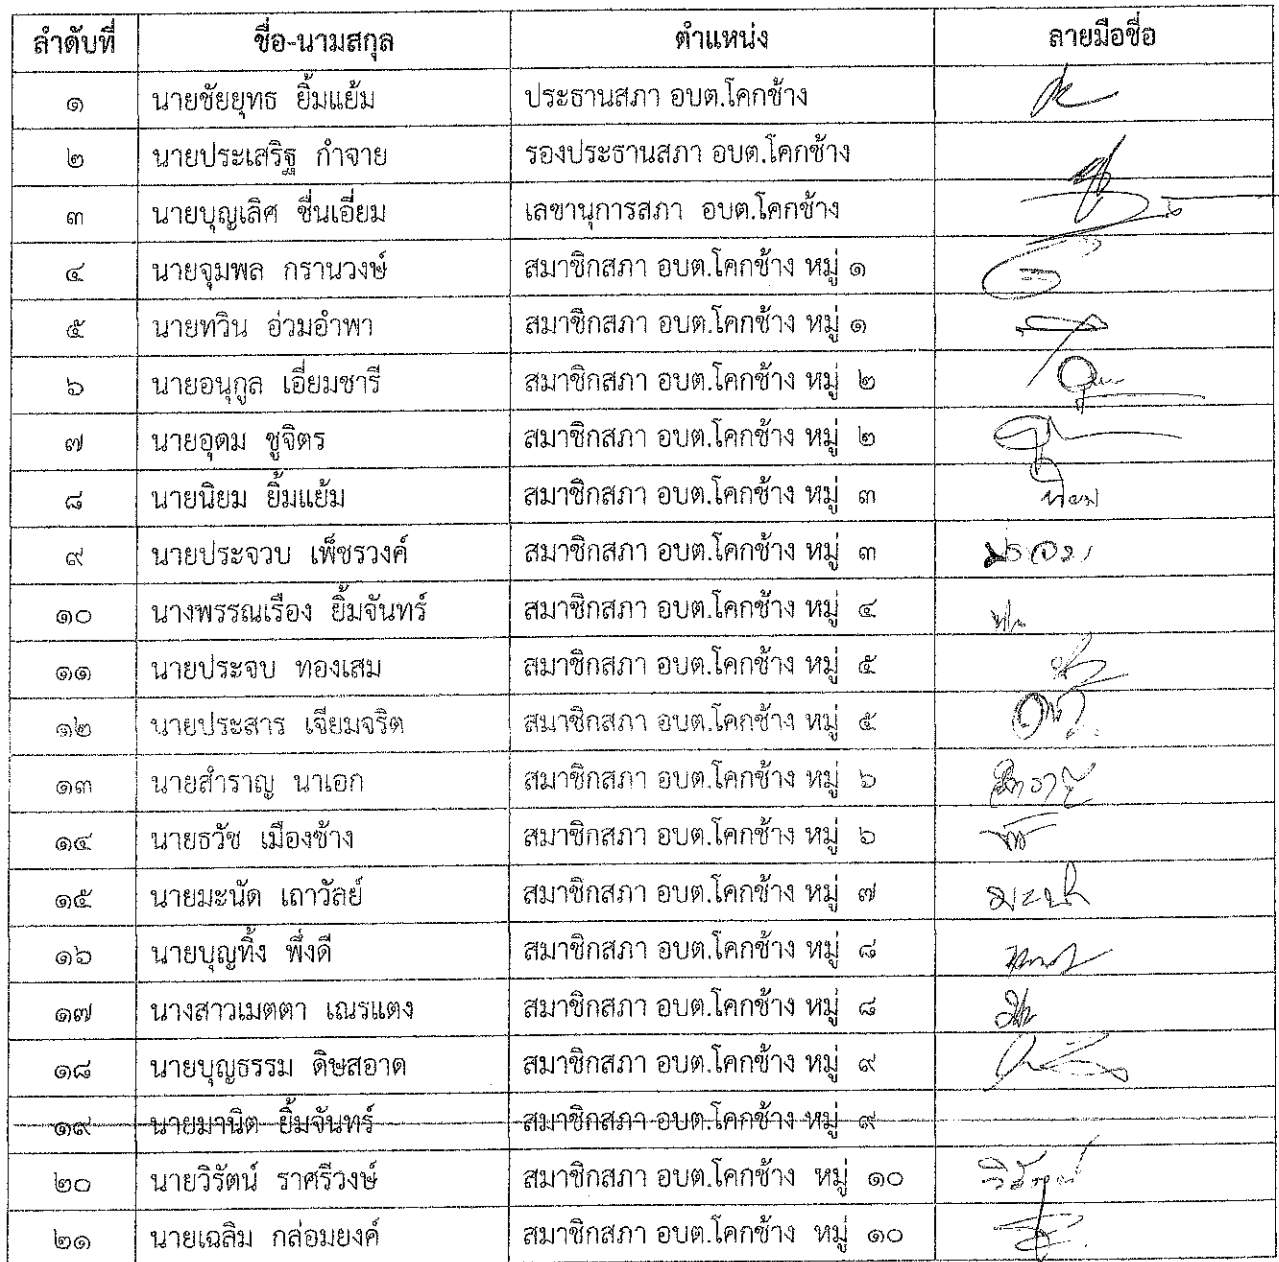 ลำดับที่ ชื่อ-นามสกุล ตำแหน่ง ลายมือชื่อ
๑ นายชัยยุทธ ยิ้มแย้ม ประธานสภา อบต.โคกช้าง
๒ นายประเสริฐ กำจาย รองประธานสภา อบต.โคกช้าง
๓ นายบุญเลิศ ชื่นเอี่ยม เลขานุการสภา อบต.โคกช้าง
๔ นายจุมพล กรานวงษ์ สมาชิกสภา อบต.โคกช้าง หมู่ ๑
๕ นายทวิน อ่วมอำพา สมาชิกสภา อบต.โคกช้าง หมู่ ๑
๖ นายอนุกูล เอี่ยมชารี สมาชิกสภา อบต.โคกช้าง หมู่ ๒
๗ นายอุดม ชูจิตร สมาชิกสภา อบต.โคกช้าง หมู่ ๒
๘ นายนิยม ยิ้มแย้ม สมาชิกสภา อบต.โคกช้าง หมู่ ๓ นิยม
๙ นายประจวบ เพ็ชรวงค์ สมาชิกสภา อบต.โคกช้าง หมู่ ๓
๑๐ นางพรรณเรือง ยิ้มจันทร์ สมาชิกสภา อบต.โคกช้าง หมู่ ๔
๑๑ นายประจบ ทองเสม สมาชิกสภา อบต.โคกช้าง หมู่ ๕
๑๒ นายประสาร เจียมจริต สมาชิกสภา อบต.โคกช้าง หมู่ ๕
๑๓ นายสำราญ นาเอก สมาชิกสภา อบต.โคกช้าง หมู่ ๖ สำราญ
๑๔ นายธวัช เมืองช้าง สมาชิกสภา อบต.โคกช้าง หมู่ ๖
๑๕ นายมะนัด เถาวัลย์ สมาชิกสภา อบต.โคกช้าง หมู่ ๗ มะนัด
๑๖ นายบุญทิ้ง พึ่งดี สมาชิกสภา อบต.โคกช้าง หมู่ ๘
๑๗ นางสาวเมตตา เณรแตง สมาชิกสภา อบต.โคกช้าง หมู่ ๘
๑๘ นายบุญธรรม ดิษสอาด สมาชิกสภา อบต.โคกช้าง หมู่ ๙
๑๙ นายมานิต ยิ้มจันทร์ สมาชิกสภา อบต.โคกช้าง หมู่ ๙
๒๐ นายวิรัตน์ ราศรีวงษ์ สมาชิกสภา อบต.โคกช้าง หมู่ ๑๐
๒๑ นายเฉลิม กล่อมยงค์ สมาชิกสภา อบต.โคกช้าง หมู่ ๑๐